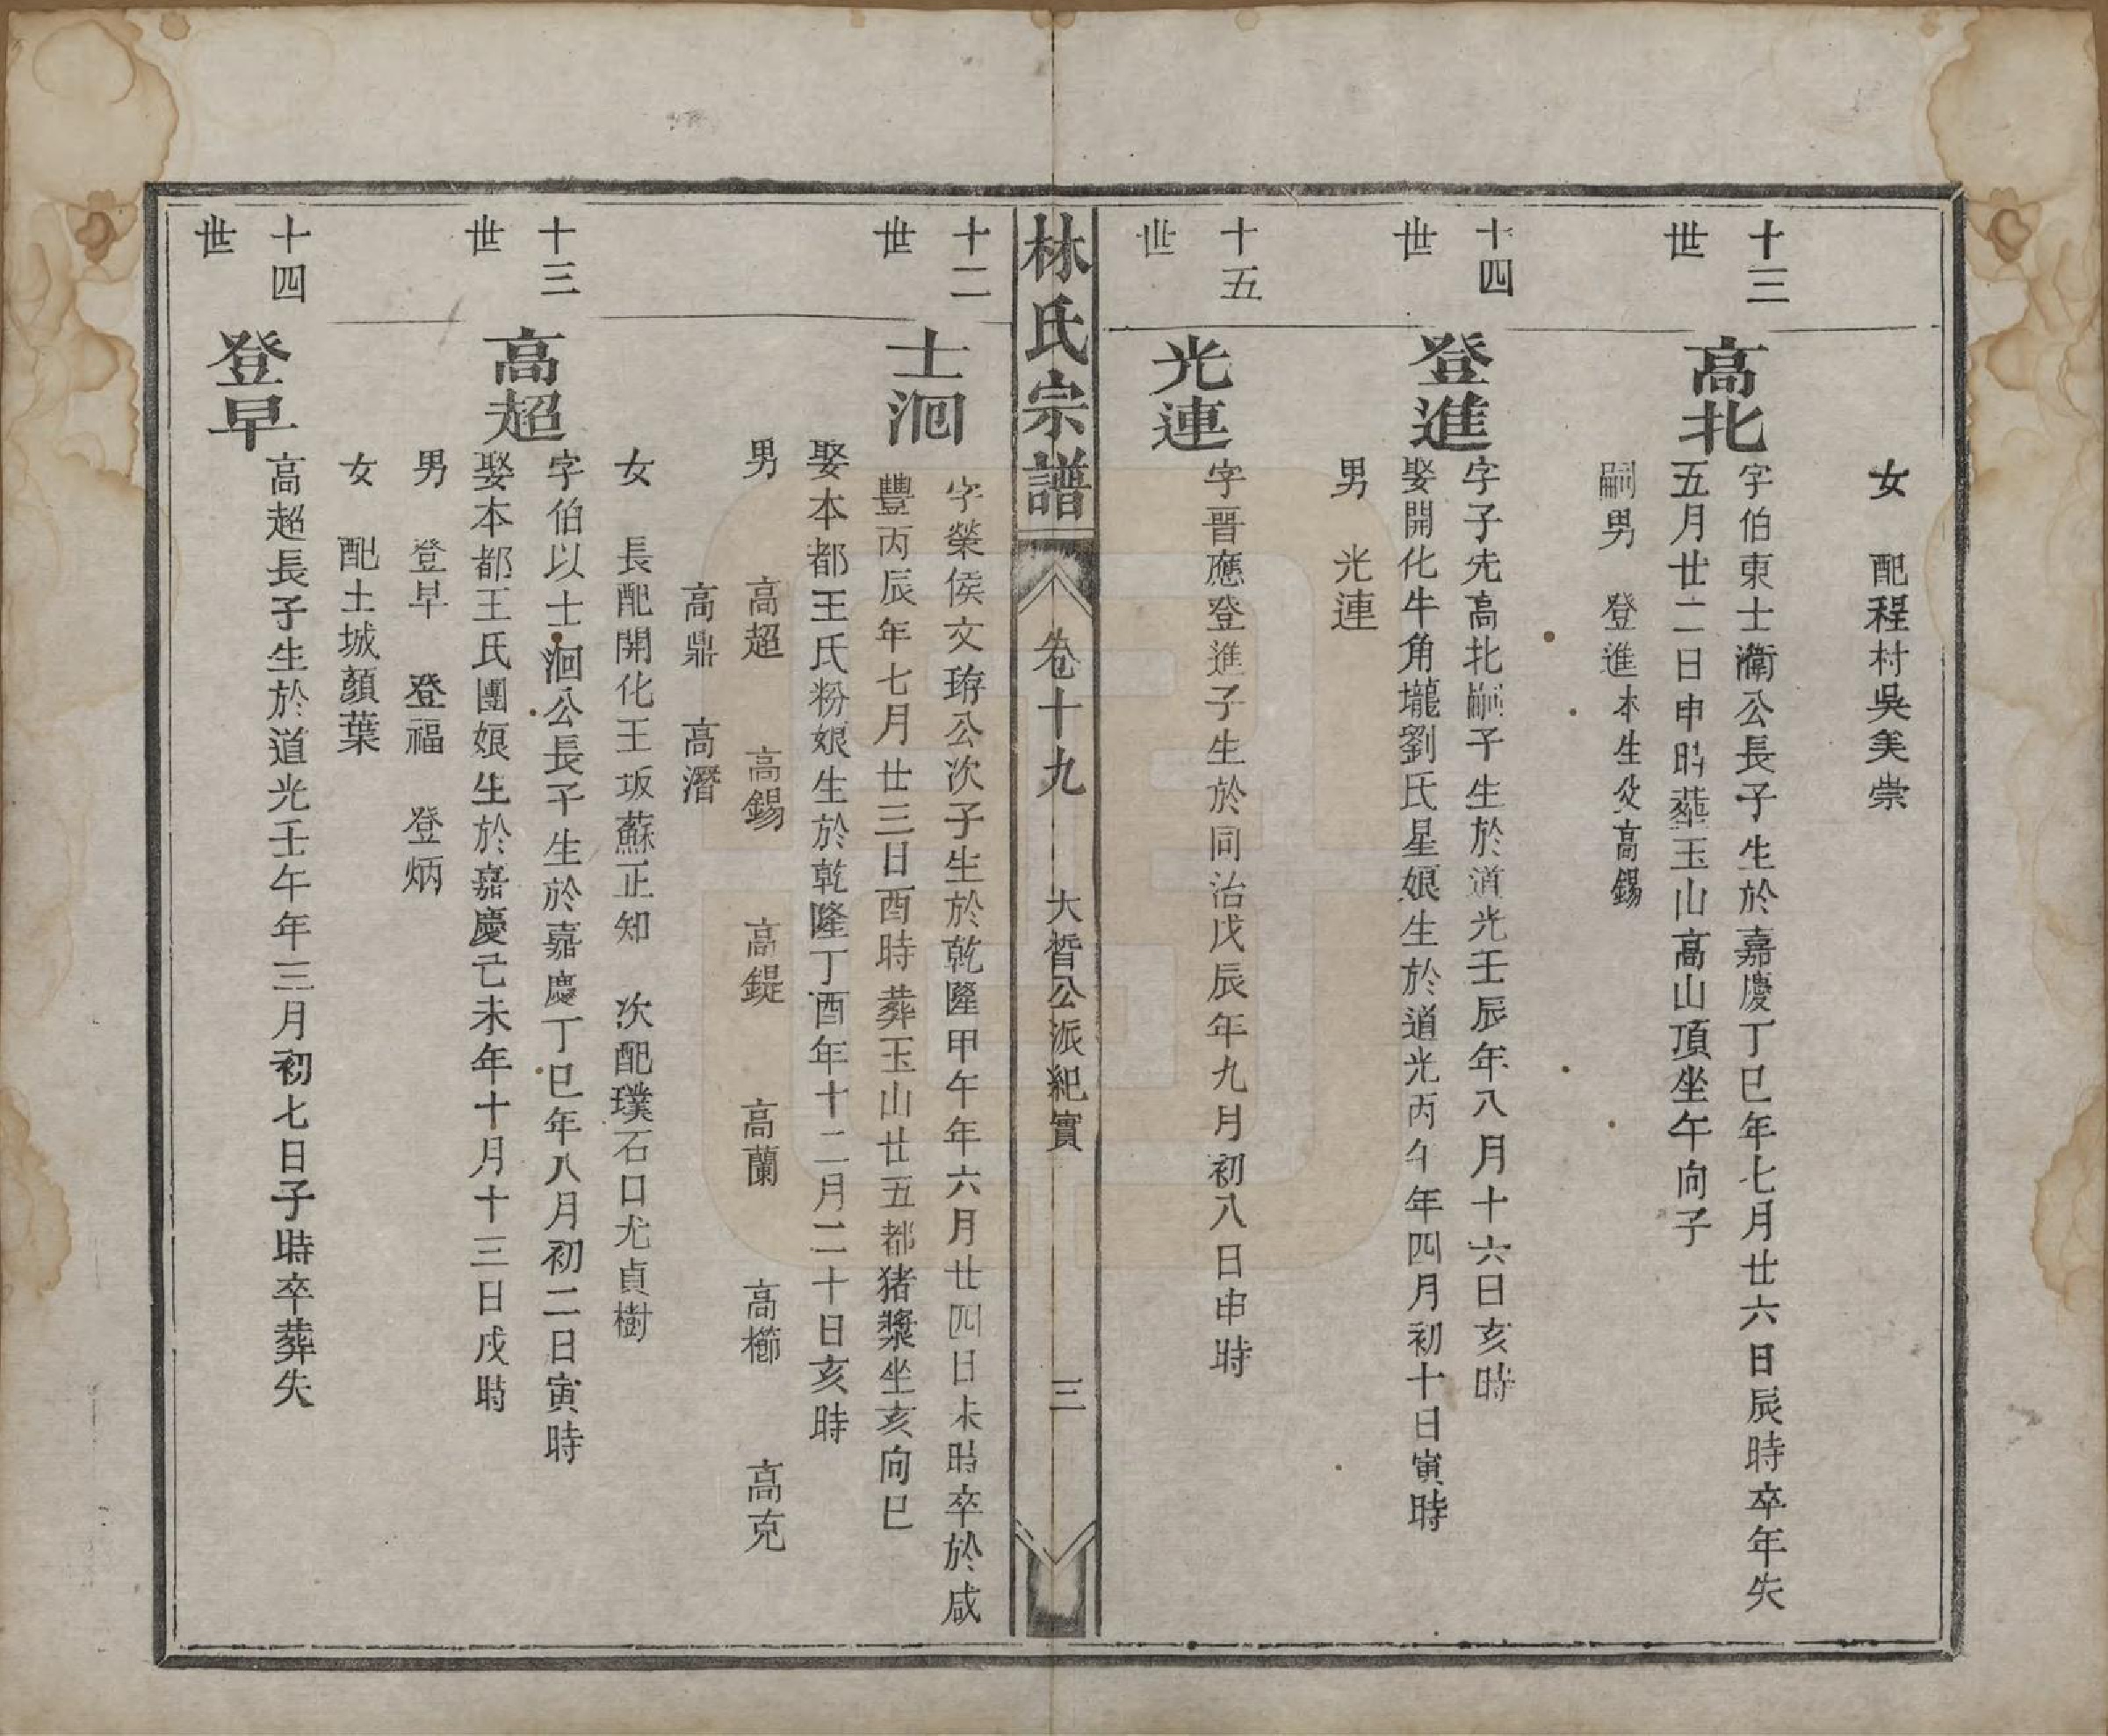 女 配程村吳美崇
十三世
高北
字伯東士衢公長子生於嘉慶丁巳年七月廿六日辰時卒年失
五月廿二日申時葬玉山高山頂坐午向子
嗣男 登進本生父高錫
十四世
登進
字子先高北嗣子生於道光壬辰年八月十六日亥時
娶開化牛角壠劉氏星娘生於道光丙午年四月初十日寅時
男 光連
十五世
光連
字晋應登進子生於同治戊辰年九月初八日申時
林氏宗譜
卷十九 大晢公派紀實 三
十二世
士洄
字榮侯文珔公次子生於乾隆甲午年六月廿四日未時卒於咸
豐丙辰年七月廿三日酉時葬玉山廿五都猪槳坐亥向巳
娶本都王氏粉娘生於乾隆丁酉年十二月二十日亥時
男 高超 高錫 高鍉 高蘭 高櫛 高克
高鼎 高潛
女 長配開化王坂蘇正知 次配璞石口尤貞樹
十三世
高超
字伯以士洄公長子生於嘉慶丁巳年八月初二日寅時
娶本都王氏團娘生於嘉慶己未年十月十三日戌時
男 登早 登福 登炳
女 配土城顏葉
十四世
登早
高超長子生於道光壬午年三月初七日子時卒葬失